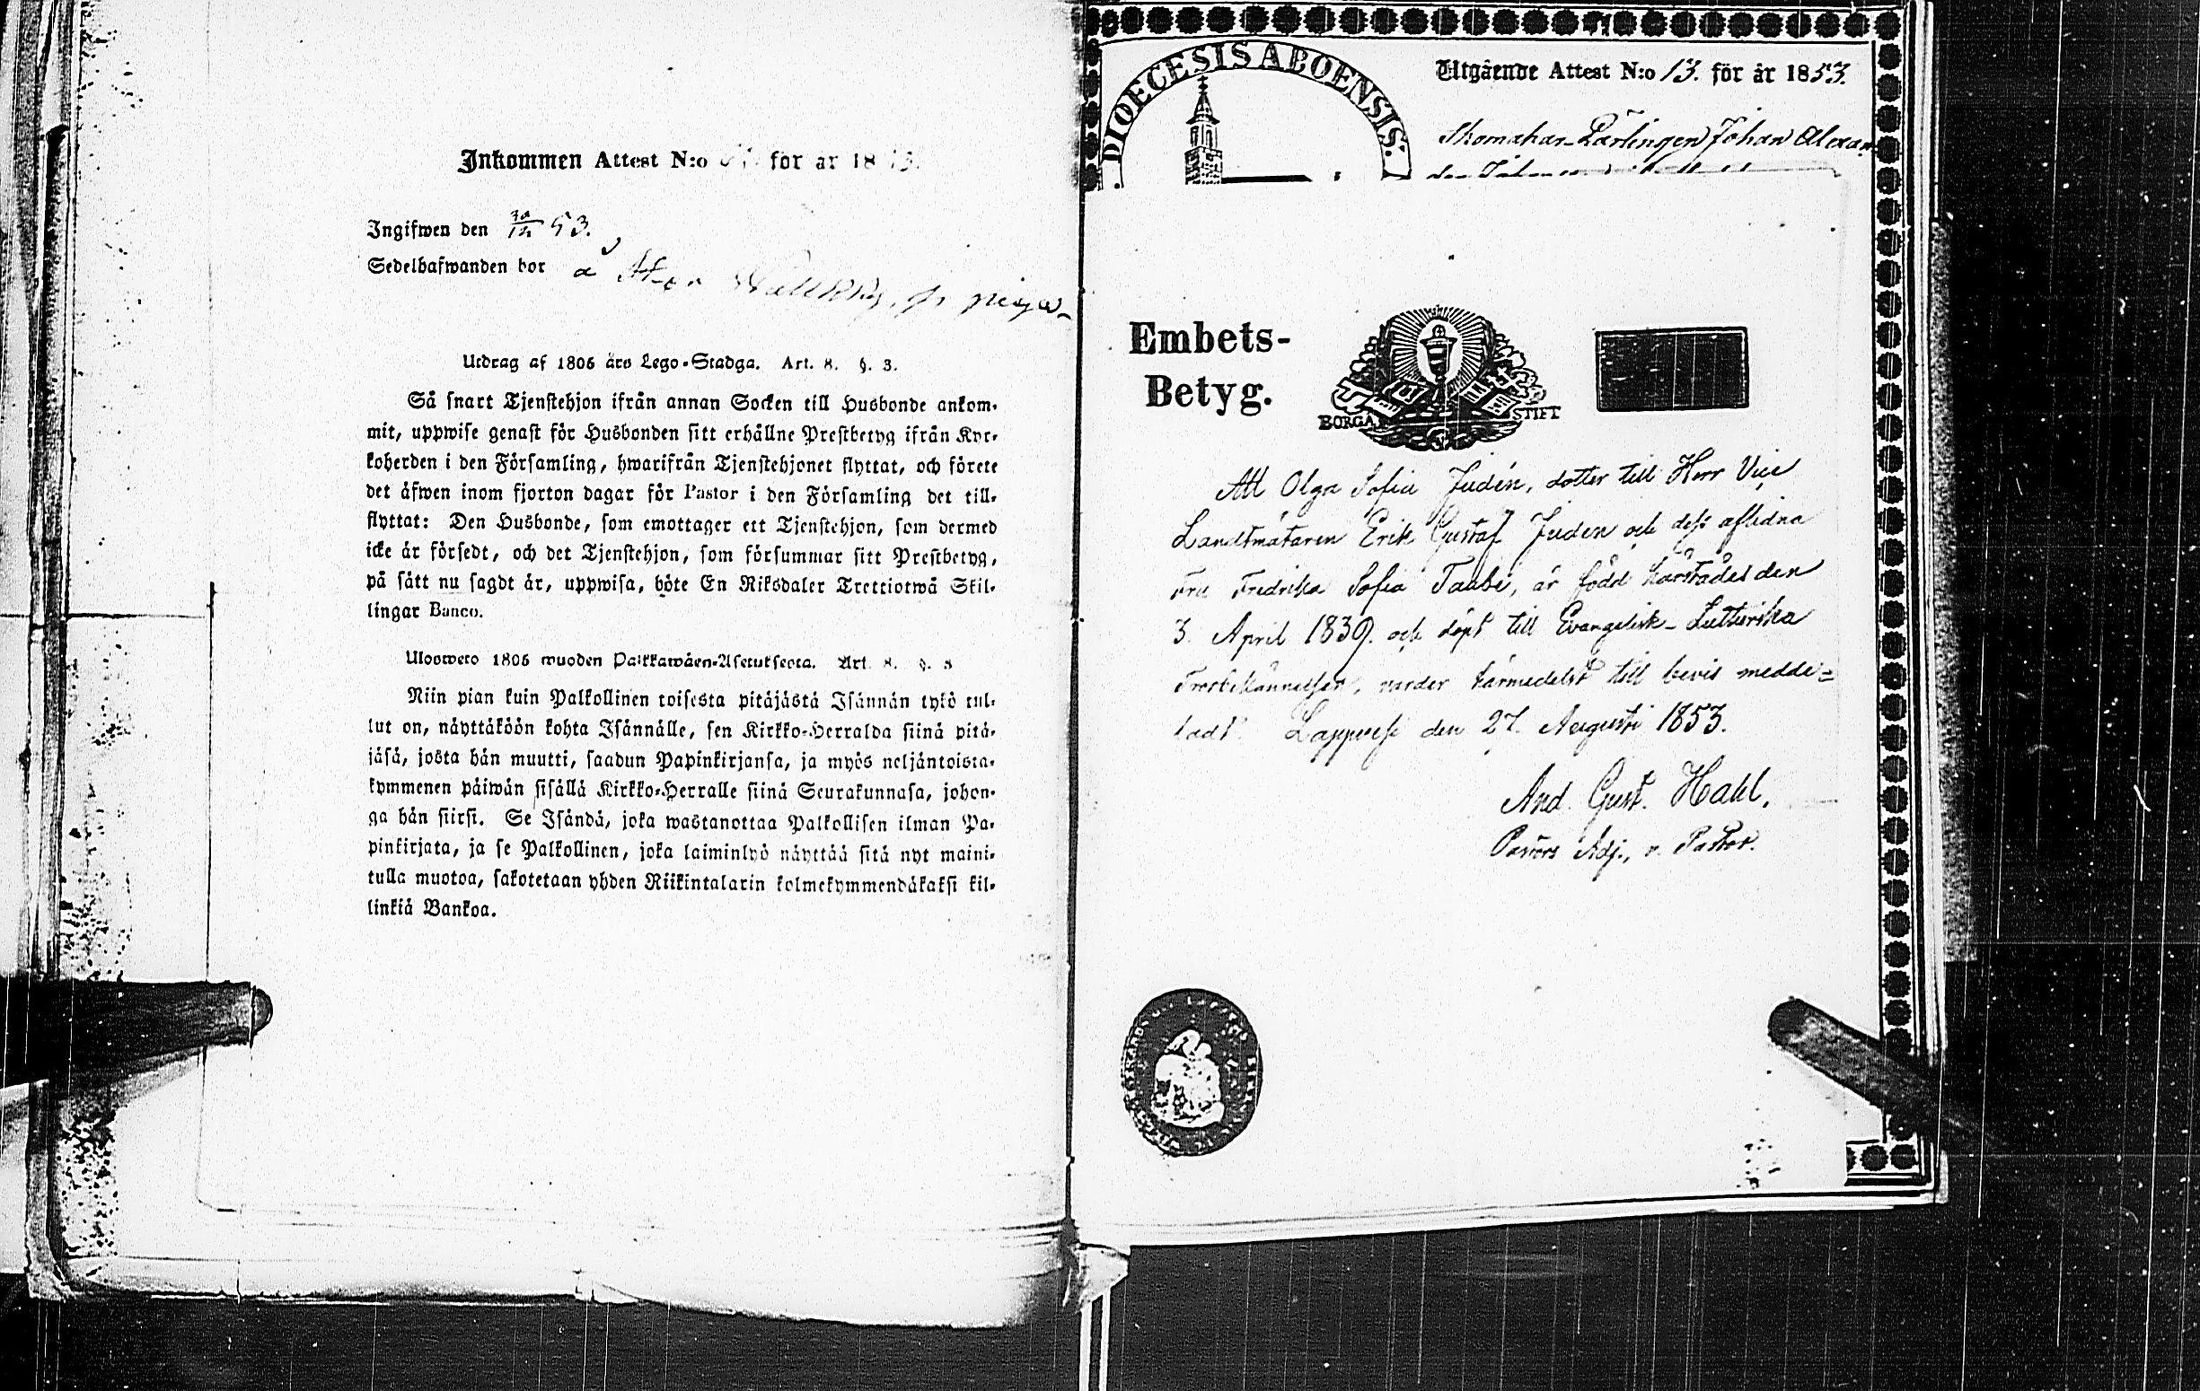 Inkommen Attest N:o för år 18
Ingifwen den 30/12 53.
Sedelhafwanden bor å
Utdrag af 1806 års Lego-Stadga. Art. 8. §. 3.
Så snart Tjenstehjon ifrån annan Socken till Husbonde ankom-
mit, uppwise genast för Husbonden sitt erhållne Prestbetyg ifrån Kyr-
koherden i den Församling, hwarifrån Tjenstehjonet flyttat, och förete
det äfwen inom fjorton dagar för Pastor i den Församling det till-
flyttat: Den Husbonde, som emottager ett Tjenstehjon, som dermed
icke är försedt, och det Tjenstehjon, som försummar sitt Prestbetyg,
på sätt nu sagdt är, uppwisa, böte En Riksdaler Trettiotwå Skil-
lingar Banco.
Ulosweto 1806 wuoden Palkkawäen-Asetuksesta. Art. 8. §. 3
Niin pian kuin Palkollinen toisesta pitäjästä Isännän tykö tul-
lut on, näyttäköön kohta Isännälle, sen Kirkko-Herralda siinä pitä-
jäsä, josta hän muutti, saadun Papinkirjansa, ja myös neljäntoista-
kymmenen päiwän sisällä Kirkko-Herralle siinä Seurakunnasa, johon-
ga hän siirsi. Se Isändä, joka wastanottaa Palkollisen ilman Pa-
pinkirjata, ja se Palkollinen, joka laiminlyö näyttää sitä nyt maini-
tulla muotoa, sakotetaan yhden Riikintalarin kolmekymmendäkaksi kil-
linkiä Bankoa.
DIOECESIS ABOENSIS.
Utgående Attest N:o 13. för år 1853.
Skomakar-Lärlingen Johan Alexan-
Embets-
Betyg.
BORGÅ STIFT
Att Olga Sofia Judén, dotter till Herr Vice
Landtmätaren Erik Gustaf Juden och dess aflidna
Fru Fredrika Sofia Taube, är född härstädes den
3. April 1839. och döpt till Evangelisk-Lutherska
Trosbekännelsen, varder härmedelst till bevis medde=
ladt. Lappvesi den 27. Augusti 1853.
And. Gust. Hahl.
Pastors Adj., v. Pastor.